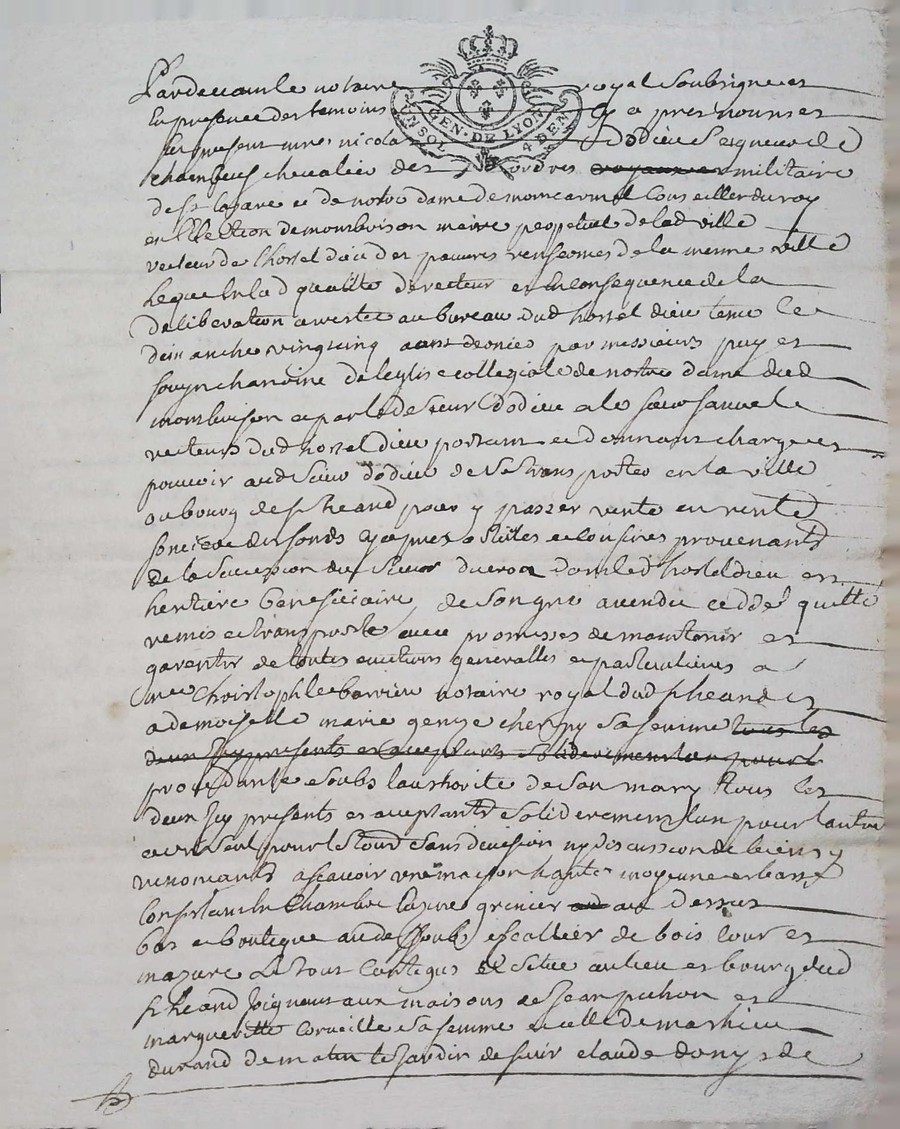 Pardevant le notaire royal soubsigne et
en presence des temoins cy apres nommes
fut present mre nicolas Dodieu seigneur de
UN SOL GEN·DE LYON 4 DEN
chevalier des ordres militaire
de st lazare et de notre dame de mont carmel Conseiller du roy
en Election de montbrison maire perpetuel de lad ville
recteur de l'hostel dieu des pauvres renfermes de la meme ville
lequel en lad qualitte de recteur et en consequence de la
deliberation arrestee au bureau dud hostel dieu tenu le
dimanche vingt cinq aoust dernier par messieurs puy et
chanoine de leglise collegiale de notre dame dud
montbrison et par led sieur Dodieu
recteurs dud hostel dieu portant et donnant charge et
pouvoir aud sieur dodieu de se transporter en la ville
ou bourg de st heand pour y passer vente en
des fonds cy apres et confines provenants
de la succession du sieur ducros dont led hostel dieu est
heritiere beneficiaire, de son gre a vendu cedde quitte
remis et transporte avec promesses de maintenir et
garentir de toutes evictions generalles et particulieres a
mre Christophle barrieu notaire royal dud st heand et
a demoiselle marie cherny sa femme tous les
deux icy presents et acceptants solidairement lun pour l
procedante soubs lauthorite de son mary tous les
deux icy presents et acceptants soliderement lun pour lautre
et un seul pour le tout sans division ny discussion de biens y
renoncants a scavoir une maison haute moyenne et basse
Consistant en Chambre grenier au dessus
bas et boutique au dessoubs escallier de bois cour et
mazure le tout Contigus et situe au lieu et bourg dud
st heand joignant aux maisons de jean pichon et
margueritte Corneille sa femme et celle de mathieu
durand de matin le jardin de sieur claude donys de